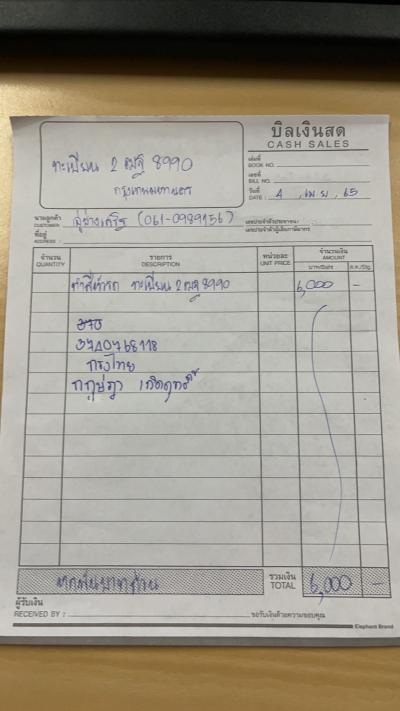 บิลเงินสด
CASH SALES
ทะเบียน 2 ฒฐ 8990
กรุงเทพมหานคร
เล่มที่
BOOK NO.
เลขที่
BILL NO.
วันที่
DATE : 4 , เม.ย , 65
นามลูกค้า
CUSTOMER (061-0989156)
เลขประจำตัวประชาชน
ที่อยู่
ADDRESS :
เลขประจำตัวผู้เสียภาษีอากร
จำนวน
QUANTITY
รายการ
DESCRIPTION
หน่วยละ
UNIT PRICE
จำนวนเงิน
AMOUNT
บาท/Baht ส.ต./Stg.
ทำสีเก๋งรถ ทะเบียน 2 ฒฐ 8990 6,000 -
3740768118
กรุงไทย
หกพันบาทถ้วน
รวมเงิน
TOTAL 6,000 -
ผู้รับเงิน
RECEIVED BY :
ขอรับเงินด้วยความขอบคุณ
Elephant Brand